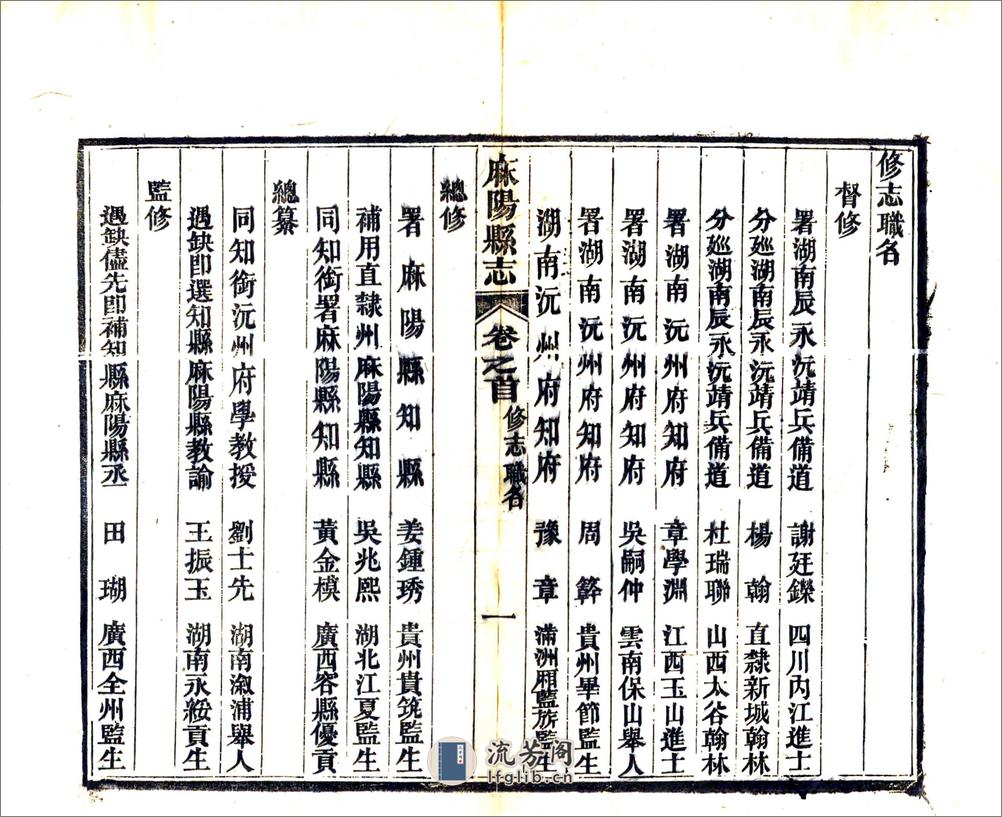 修志職名
督修
署湖南辰永沅靖兵備道 謝廷鑅 四川內江進士
分廵湖南辰永沅靖兵備道 楊翰 直隸新城翰林
分廵湖南辰永沅靖兵備道 杜瑞聯 山西太谷翰林
署湖南沅州府知府 章學淵 江西玉山進士
署湖南沅州府知府 吳嗣仲 雲南保山舉人
署湖南沅州府知府 周 貴州畢節監生
湖南沅州府知府 豫章 滿洲廂藍旗監生
麻陽縣志 卷之首 修志職名 一
總修
署麻陽縣知縣 姜鍾琇 貴州貴筑監生
補用直隸州麻陽縣知縣 吳兆熙 湖北江夏監生
同知銜署麻陽縣知縣 黃金模 廣西容縣優貢
總纂
同知銜沅州府學教授 劉士先 湖南漵浦舉人
遇缺即選知縣麻陽縣教諭 王振玉 湖南永綏貢生
監修
遇缺儘先即補知縣麻陽縣丞 田瑚 廣西全州監生
流芳閣
lfglib.cn